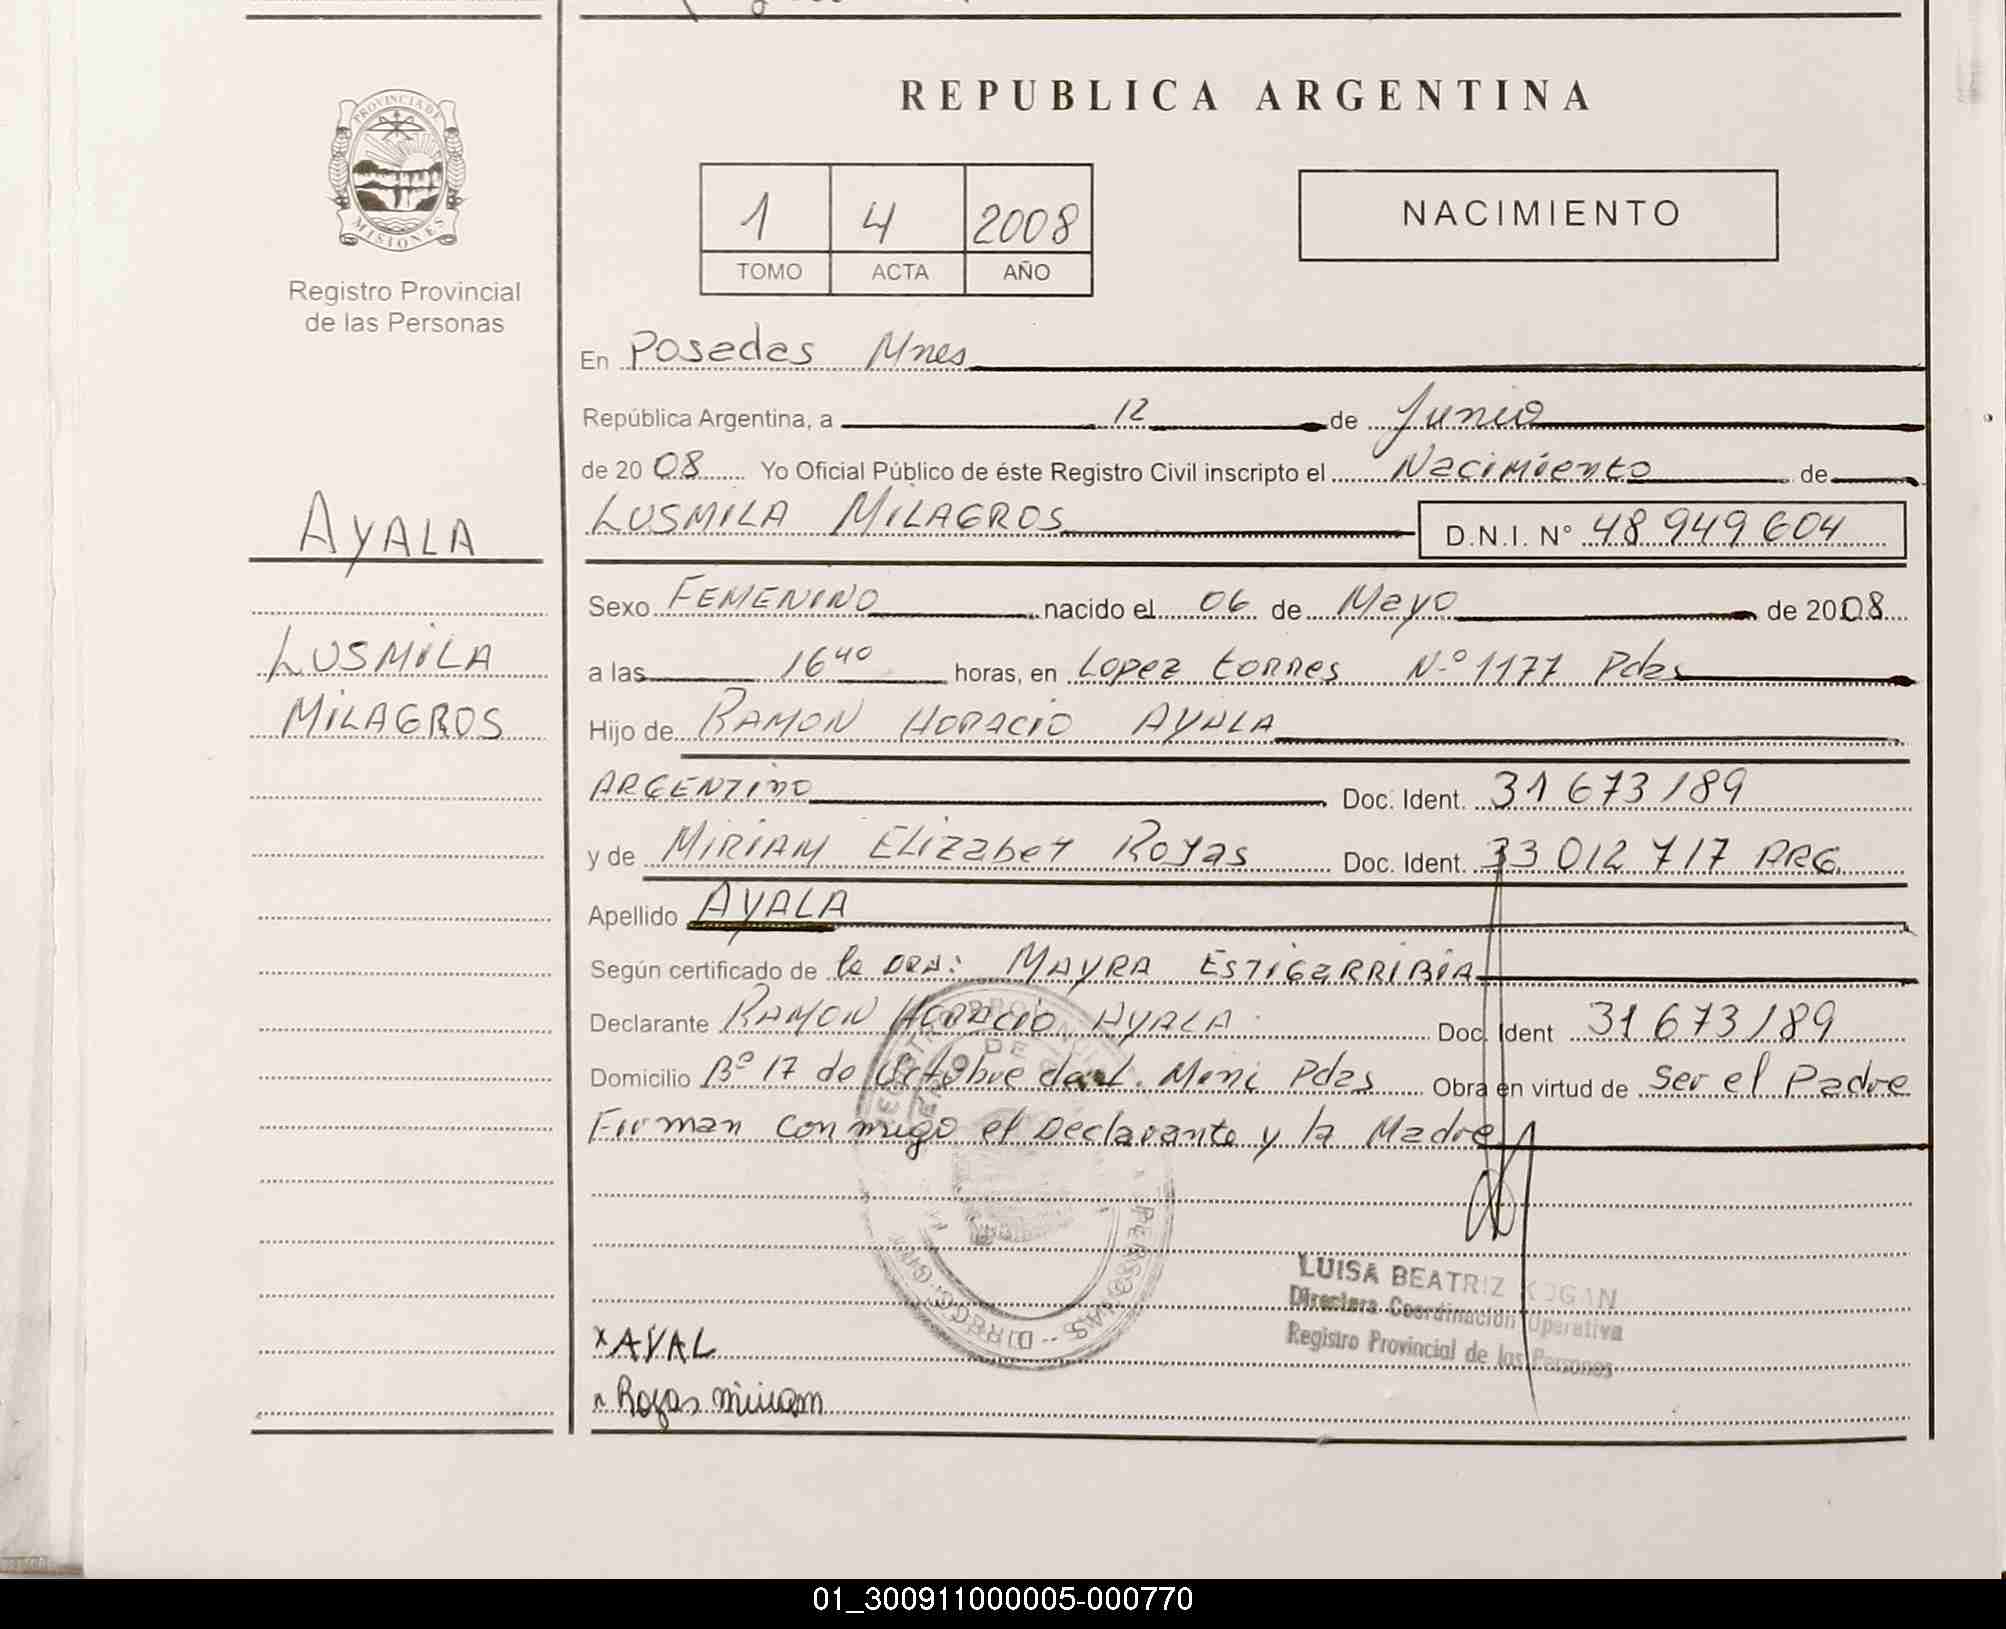 REPUBLICA ARGENTINA
PROVINCIA DE
MISIONES
Registro Provincial
de las Personas
1 4 2008
TOMO ACTA AÑO
NACIMIENTO
En Posadas Mnes
República Argentina, a 12 de Junio
de 2008 Yo Oficial Público de éste Registro Civil inscripto el Nacimiento de
AYALA
LUSMILA MILAGROS D.N.I. N° 48 949 604
Sexo FEMENINO nacido el 06 de Mayo de 2008
LUSMILA
MILAGROS
a las 16 40 horas, en Lopez torres N.º 1177 Pdas
Hijo de RAMON HORACIO AYALA
ARGENTINO Doc. Ident. 31 673 189
y de MIRIAM ELIZABET ROJAS Doc. Ident. 33 012 717 ARG.
Apellido AYALA
Según certificado de la DRA: MAYRA ESTIGARRIBIA
Declarante RAMON HORACIO AYALA Doc. Ident 31 673 189
Domicilio Bº 17 de Octubre Mini Pdas Obra en virtud de ser el Padre
Firman conmigo el Declarante y la Madre
LUISA BEATRIZ KOGAN
Directora Coordinación Operativa
Registro Provincial de las Personas
x AYAL
Rojas miriam
01_300911000005-000770